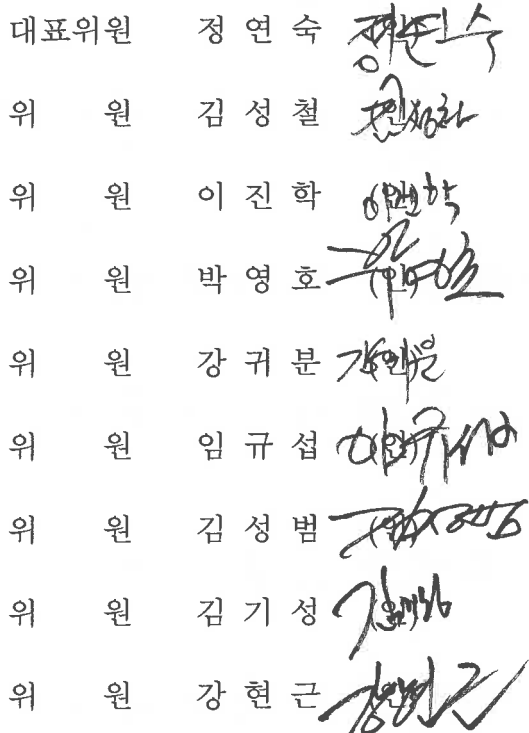 대표위원 정연숙 정연숙
위 원 김성철 김성철
위 원 이진학 이진학
위 원 박영호
위 원 강귀분
위 원 임규섭 임규섭
위 원 김성범
위 원 김기성
위 원 강현근 강현근